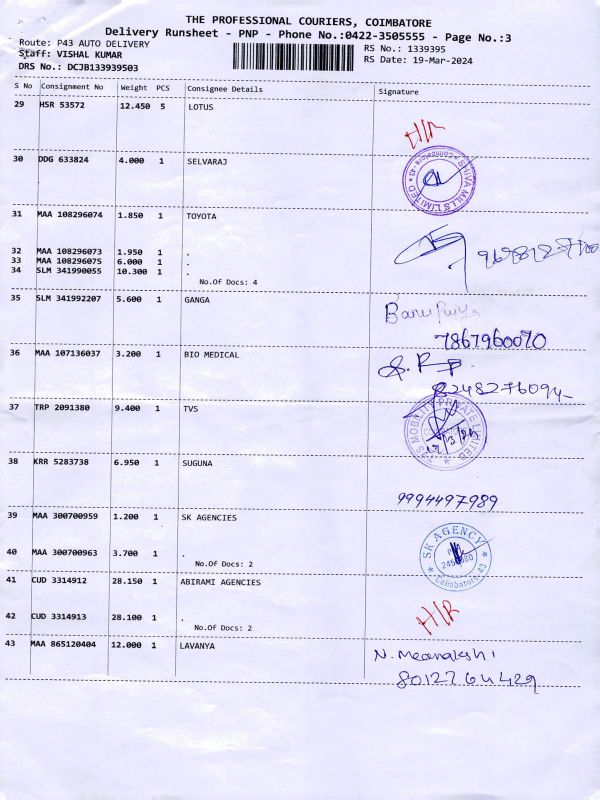 THE PROFESSIONAL COURIERS, COIMBATORE
Delivery Runsheet - PNP - Phone No.:0422-3505555 - Page No.:3
Route: P43 AUTO DELIVERY
RS No.: 1339395
Staff: VISHAL KUMAR
RS Date: 19-Mar-2024
DRS No.: DCJB133939503
S No Consignment No Weight PCS Consignee Details Signature
29 HSR 53572 12.450 5 LOTUS
H/R
30 DDG 633824 4.000 1 SELVARAJ
SHIVA MILLS LIMITED
31 MAA 108296074 1.850 1 TOYOTA
32 MAA 108296073 1.950 1 .
33 MAA 108296075 6.000 1 .
34 SLM 341990055 10.300 1 .
No.Of Docs: 4
35 SLM 341992207 5.600 1 GANGA
7867960070
36 MAA 107136037 3.200 1 BIO MEDICAL
8248276094
37 TRP 2091380 9.400 1 TVS
MOBILITY PRIVATE LIMITED
38 KRR 5283738 6.950 1 SUGUNA
9994497989
39 MAA 300700959 1.200 1 SK AGENCIES
SK AGENCY
Coimbatore - 43
40 MAA 300700963 3.700 1 .
No.Of Docs: 2
41 CUD 3314912 28.150 1 ABIRAMI AGENCIES
H/R
42 CUD 3314913 28.100 1 .
No.Of Docs: 2
43 MAA 865120404 12.000 1 LAVANYA
N. Meenakshi
8012764429